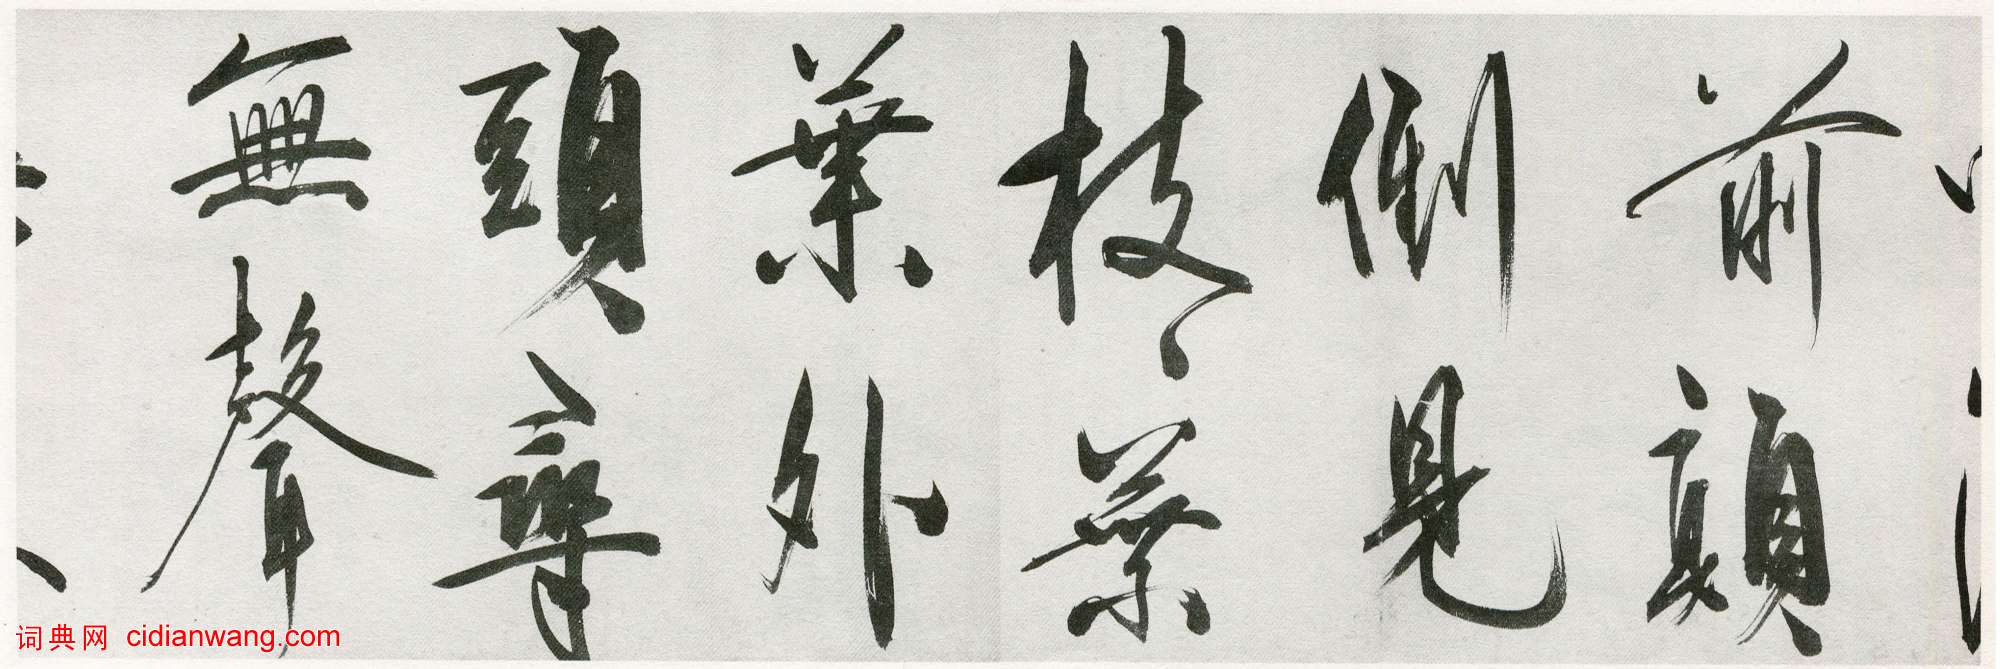 前顛
倒見
枝〻葉
葉外
頭尋
無聲
词典网 cidianwang.com